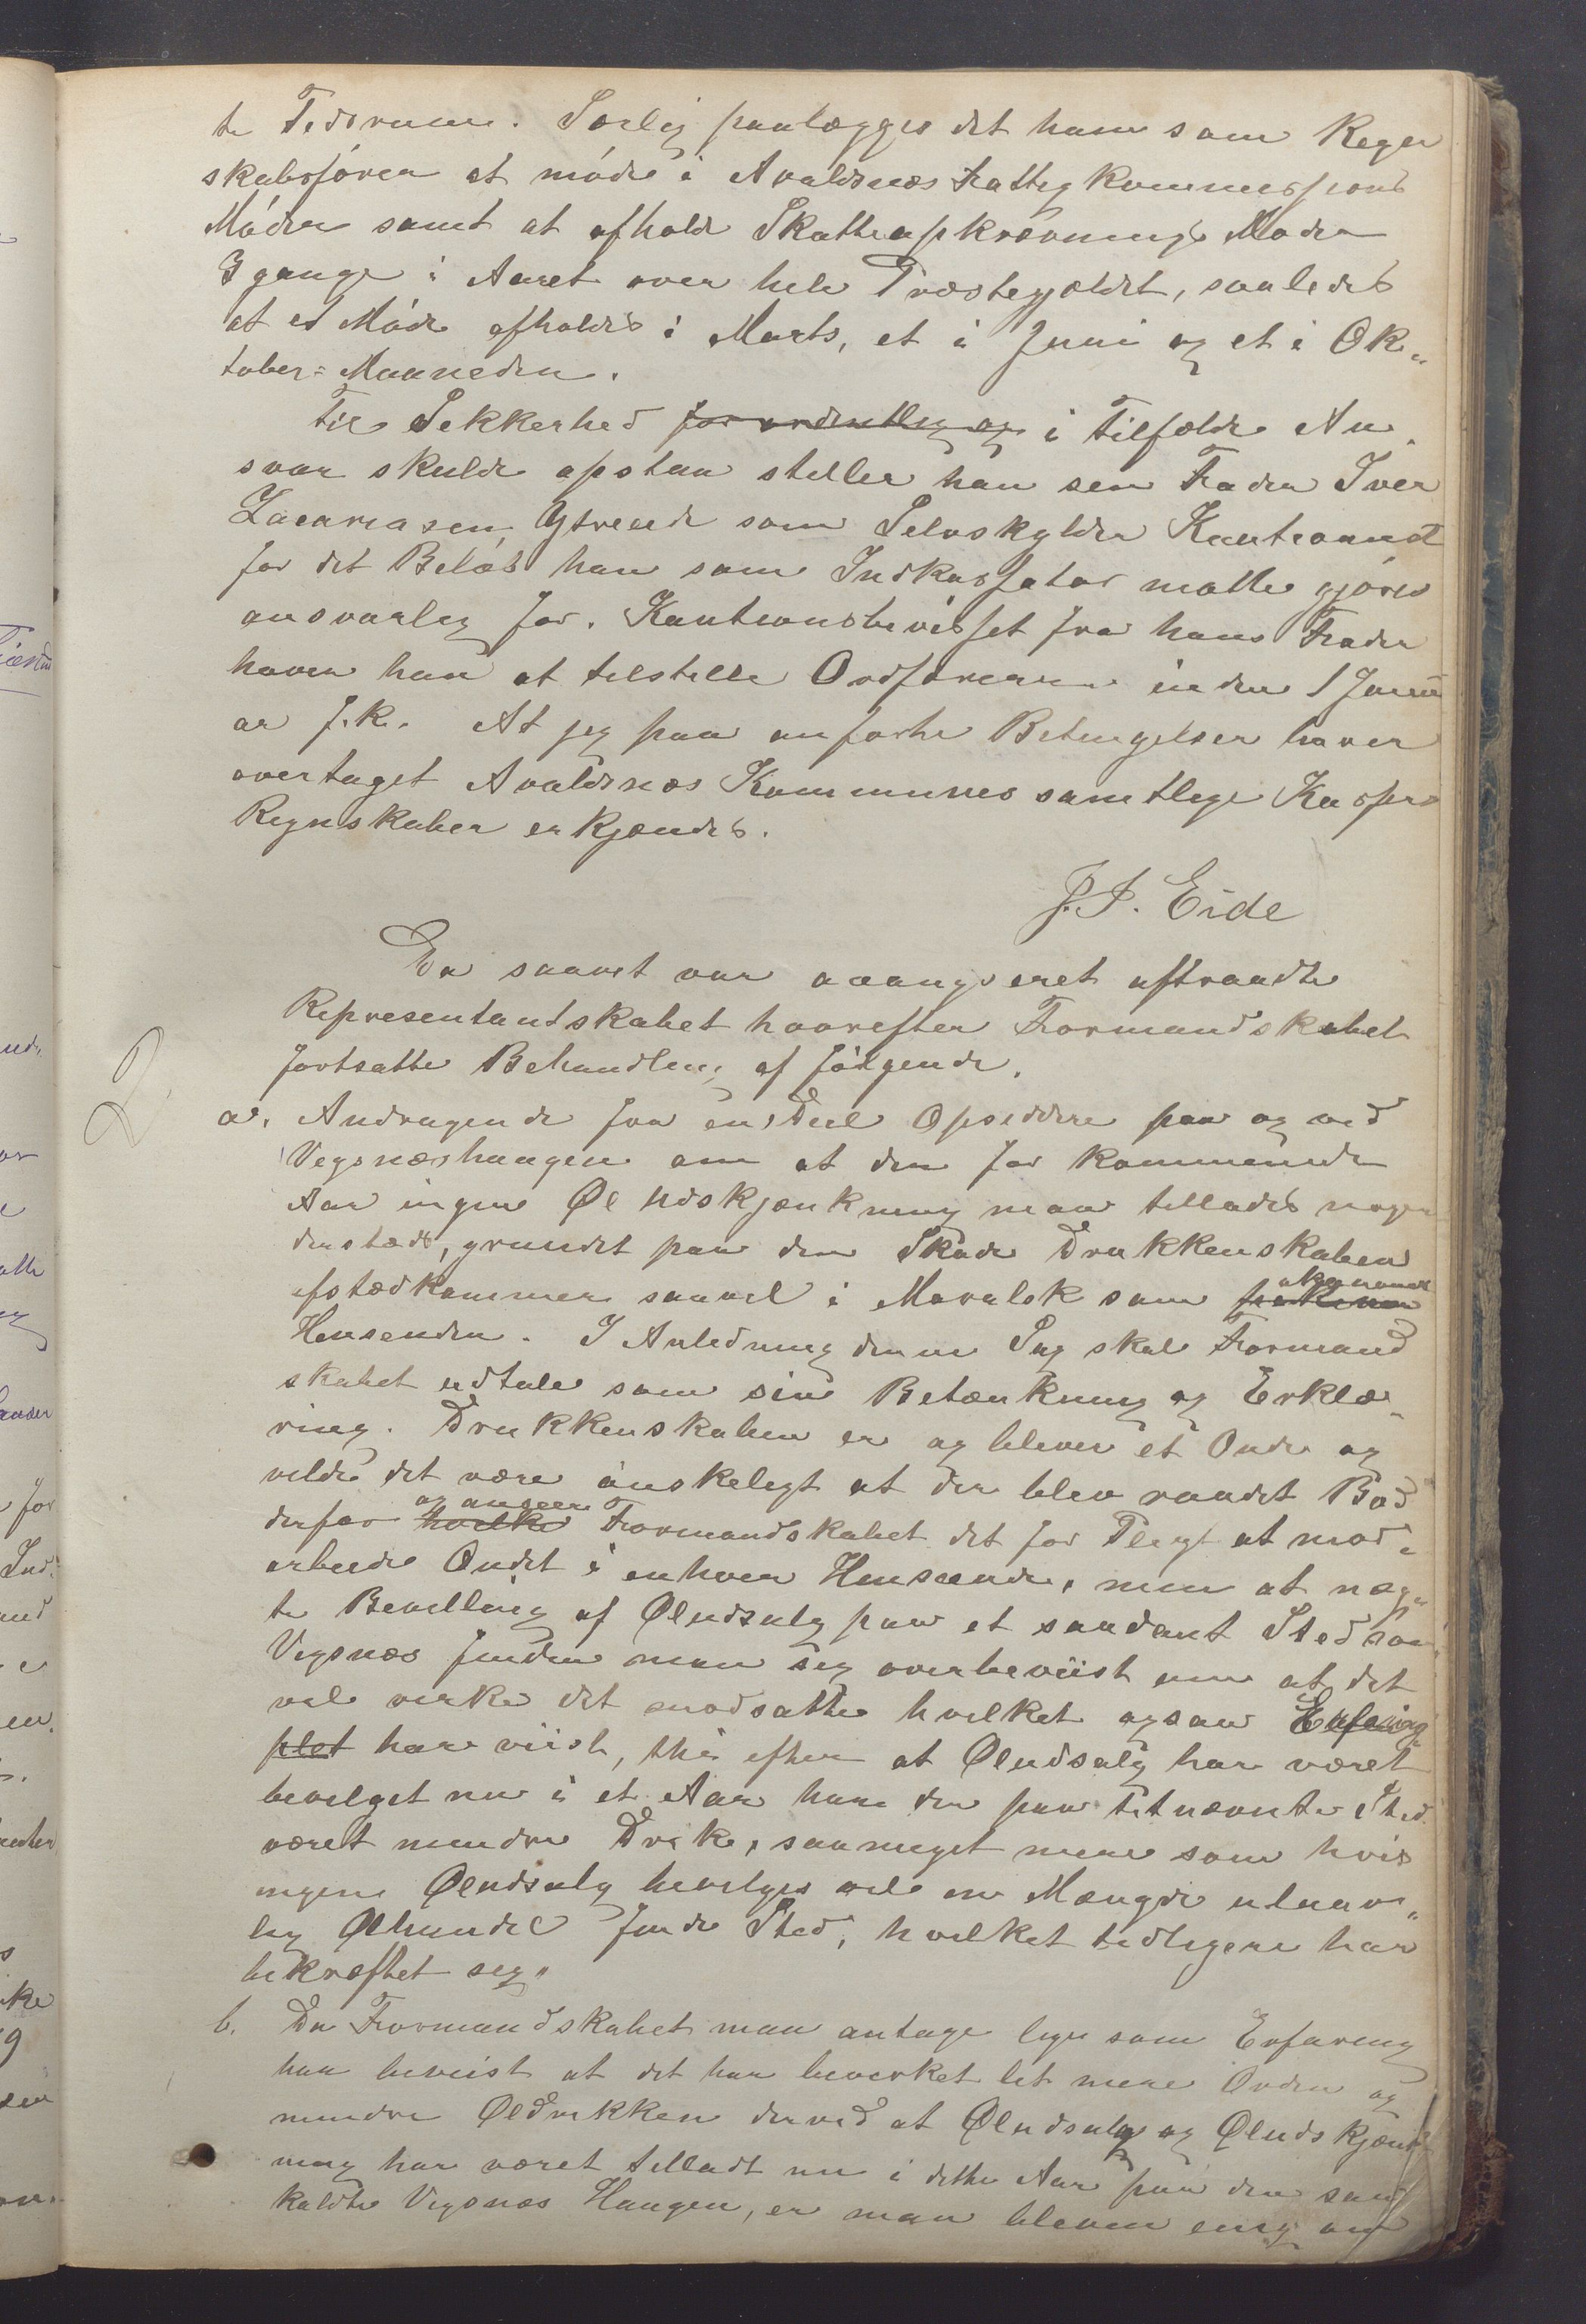 te Tidsrum. Særlig paalægges det ham som Regn
skabsfører at møde i Avaldsnes Fattigkommissions
Møder samt at afholde Skatteopkrævnings Møder
3 gange i Aaret over hele Præstegjældet, saaledes
at et Møde afholdes i Marts, et i Juni og et i Ok„
tober=Maaneden.
Til Sikkerhed for ordentlig og i Tilfælde An„
svar skulde opstaa stiller han sin Fader Iver
Zacariasen Ytreeide som Selvskylder Kautionist
for det Beløb han som Indkassator maatte gjøres
ansvarlig for. Kautionsbeviset fra hans Fader
haver han at tilstille Ordføreren inden 1 Janu
ar f.k. At jeg paa anførte Betingelser haver
overtaget Avaldsnes Kommunes samtlige Kasse
Regnskaber erkjendes.
J. I. Eide
Da saavet var arangeret aftraadte
Representantskabet hvorefter Formandskabet
fortsatte Behandling af følgende.
2.
a. Andragende fra en Deel Opsiddere paa og ved
Vigsnæshaugen om at der for kommende
Aar ingen Øl Udskjænkning maa tillades nogen
dersteds, grundet paa den Skade Drukkenskaben
afstedkommer saavel i Moralsk som økonomisk
Hensende. I Anledning denne Sag skal Formand
skabet udtale som sin Betænkning og Erklæ„
ring. Drukkenskaben er og bliver et Onde og
vilde det være ønskeligt at der blev raadet Bod
derfor hvilke og anseer Formandskabet det for Pligt at mod„
arbeide Ondet i enhver Hensende, men at næg„
te Bevilling af Øludsalg paa et saadant Sted som
Vigsnæs finder man sig overbeviist om at det
vil virke det modsatte hvilket ogsaa Erfaring
plet har viist, thi efter at Øludsalg har været
bevilget nu i et Aar har der paa titnævnte Sted
været mindre Drik, saameget mere som hvis
ingen Øludsalg bevilges vil en Mængde ulaav„
lig Ølhandel finde Sted, hvilket tidligere har
bekræftet sig„
b. Da Formandskabet maa antage lige som Erfaring
har beviist at det har bevirket lit mere Orden og
mindre Øldrikken derved at Øludsalg og Øludskjænk
ning har været tilladt nu i dette Aar paa den saa
kaldte Vigsnæs Haugen, er man bleven enig om